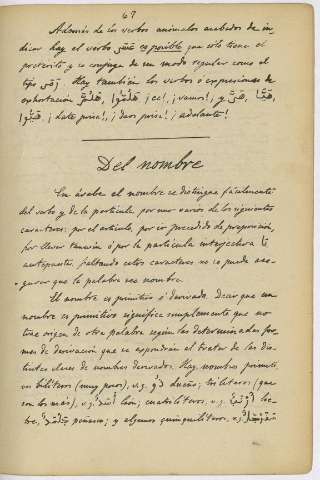 67
Además de los verbos anómalos acabados de in-
dicar hay el verbo es posible que sólo tiene el
pretérito y se conjuga de un modo regular como el
tipo رَمَى. Hay también los verbos ó expresiones de
exhortación هَلُمَّ, هَلُمُّوا ¡ea!, ¡vamos!; هَىَّ y هَيَّا,
¡date prisa!, ¡daos prisa! ¡adelante!
Del nombre
En árabe el nombre se distingue fácilmente
del verbo y de la partícula, por uno varios de los siguientes
caracteres: por el artículo, por ir precedido de preposición,
por llevar tanuin ó por la partícula interjectiva يا
antepuesta. Faltando estos caracteres no se puede ase-
gurar que la palabra sea nombre.
El nombre es primitivo ó derivado. Decir que un
nombre es primitivo significa simplemente que no
trae origen de otra palabra según las determinadas for-
mas de derivación que se expondrán al tratar de las dis-
tintas clases de nombres derivados. Hay nombres primiti-
vos bilíteros (muy pocos), v.g. ذُو dueño; trilíteros (que
son los más), v.g. أَسَدٌ león; cuadrilíteros, v.g. أَرْنَبٌ lie-
bre, y algunos quinquilíteros, v.g.